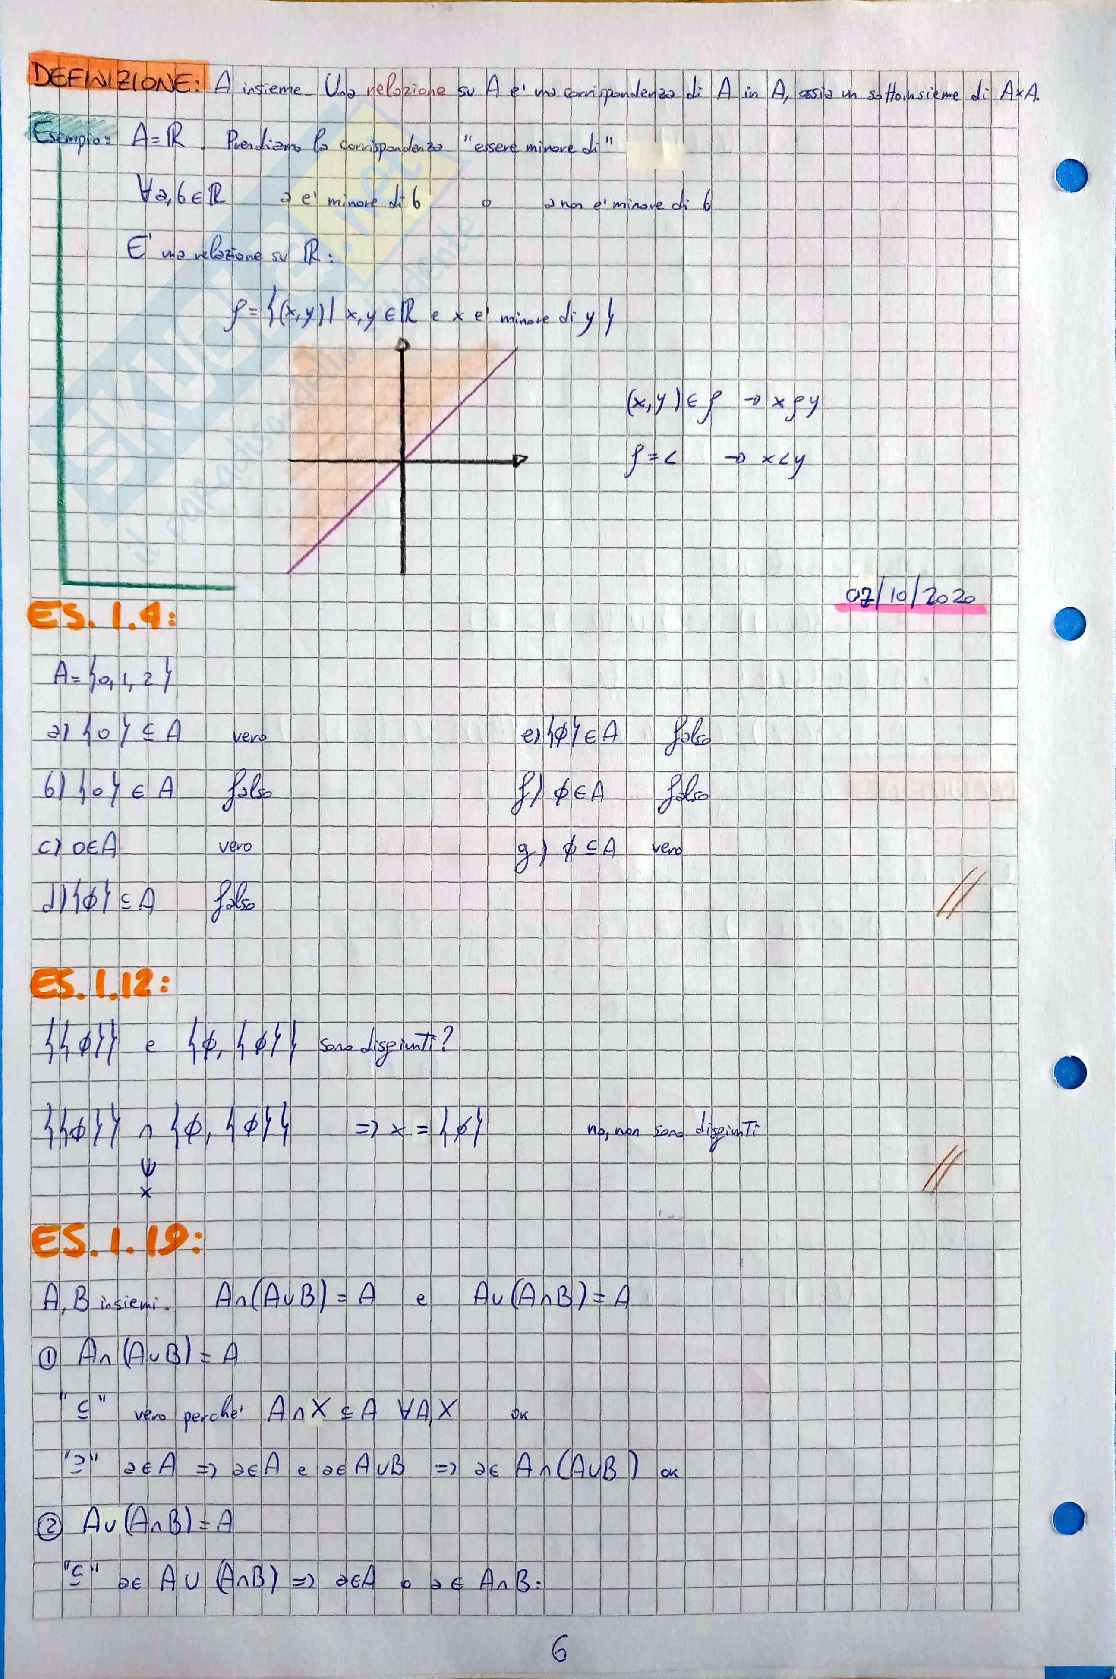 DEFINIZIONE: A insieme. Una relazione su A e' una corrispondenza di A in A, ossia un sottoinsieme di A×A.
Esempio: A=ℝ. Prendiamo la corrispondenza "essere minore di"
∀a,b∈ℝ a e' minore di b o a non e' minore di b
E' una relazione su ℝ:
ρ={(x,y)| x,y∈ℝ e x e' minore di y}
(x,y)∈ρ → xρy
ρ=< → x<y
07/10/2020
ES. 1.4:
A={0,1,2}
a) {0}⊆A vero
b) {0}∈A falso
c) 0∈A vero
d) {φ}⊆A falso
e) {φ}∈A falso
f) φ∈A falso
g) φ⊆A vero
ES. 1.12:
{{φ}} e {φ,{φ}} sono disgiunti?
{{φ}} ∩ {φ,{φ}} => x={φ} no, non sono disgiunti
x
ES. 1.19:
A,B insiemi. A∩(A∪B)=A e A∪(A∩B)=A
① A∩(A∪B)=A
"⊆" vero perche' A∩X⊆A ∀A,X ok
"⊇" a∈A => a∈A e a∈A∪B => a∈A∩(A∪B) ok
② A∪(A∩B)=A
"⊆" a∈A∪(A∩B) => a∈A o a∈A∩B:
6
SKUOLA.net
il paradiso dello studente